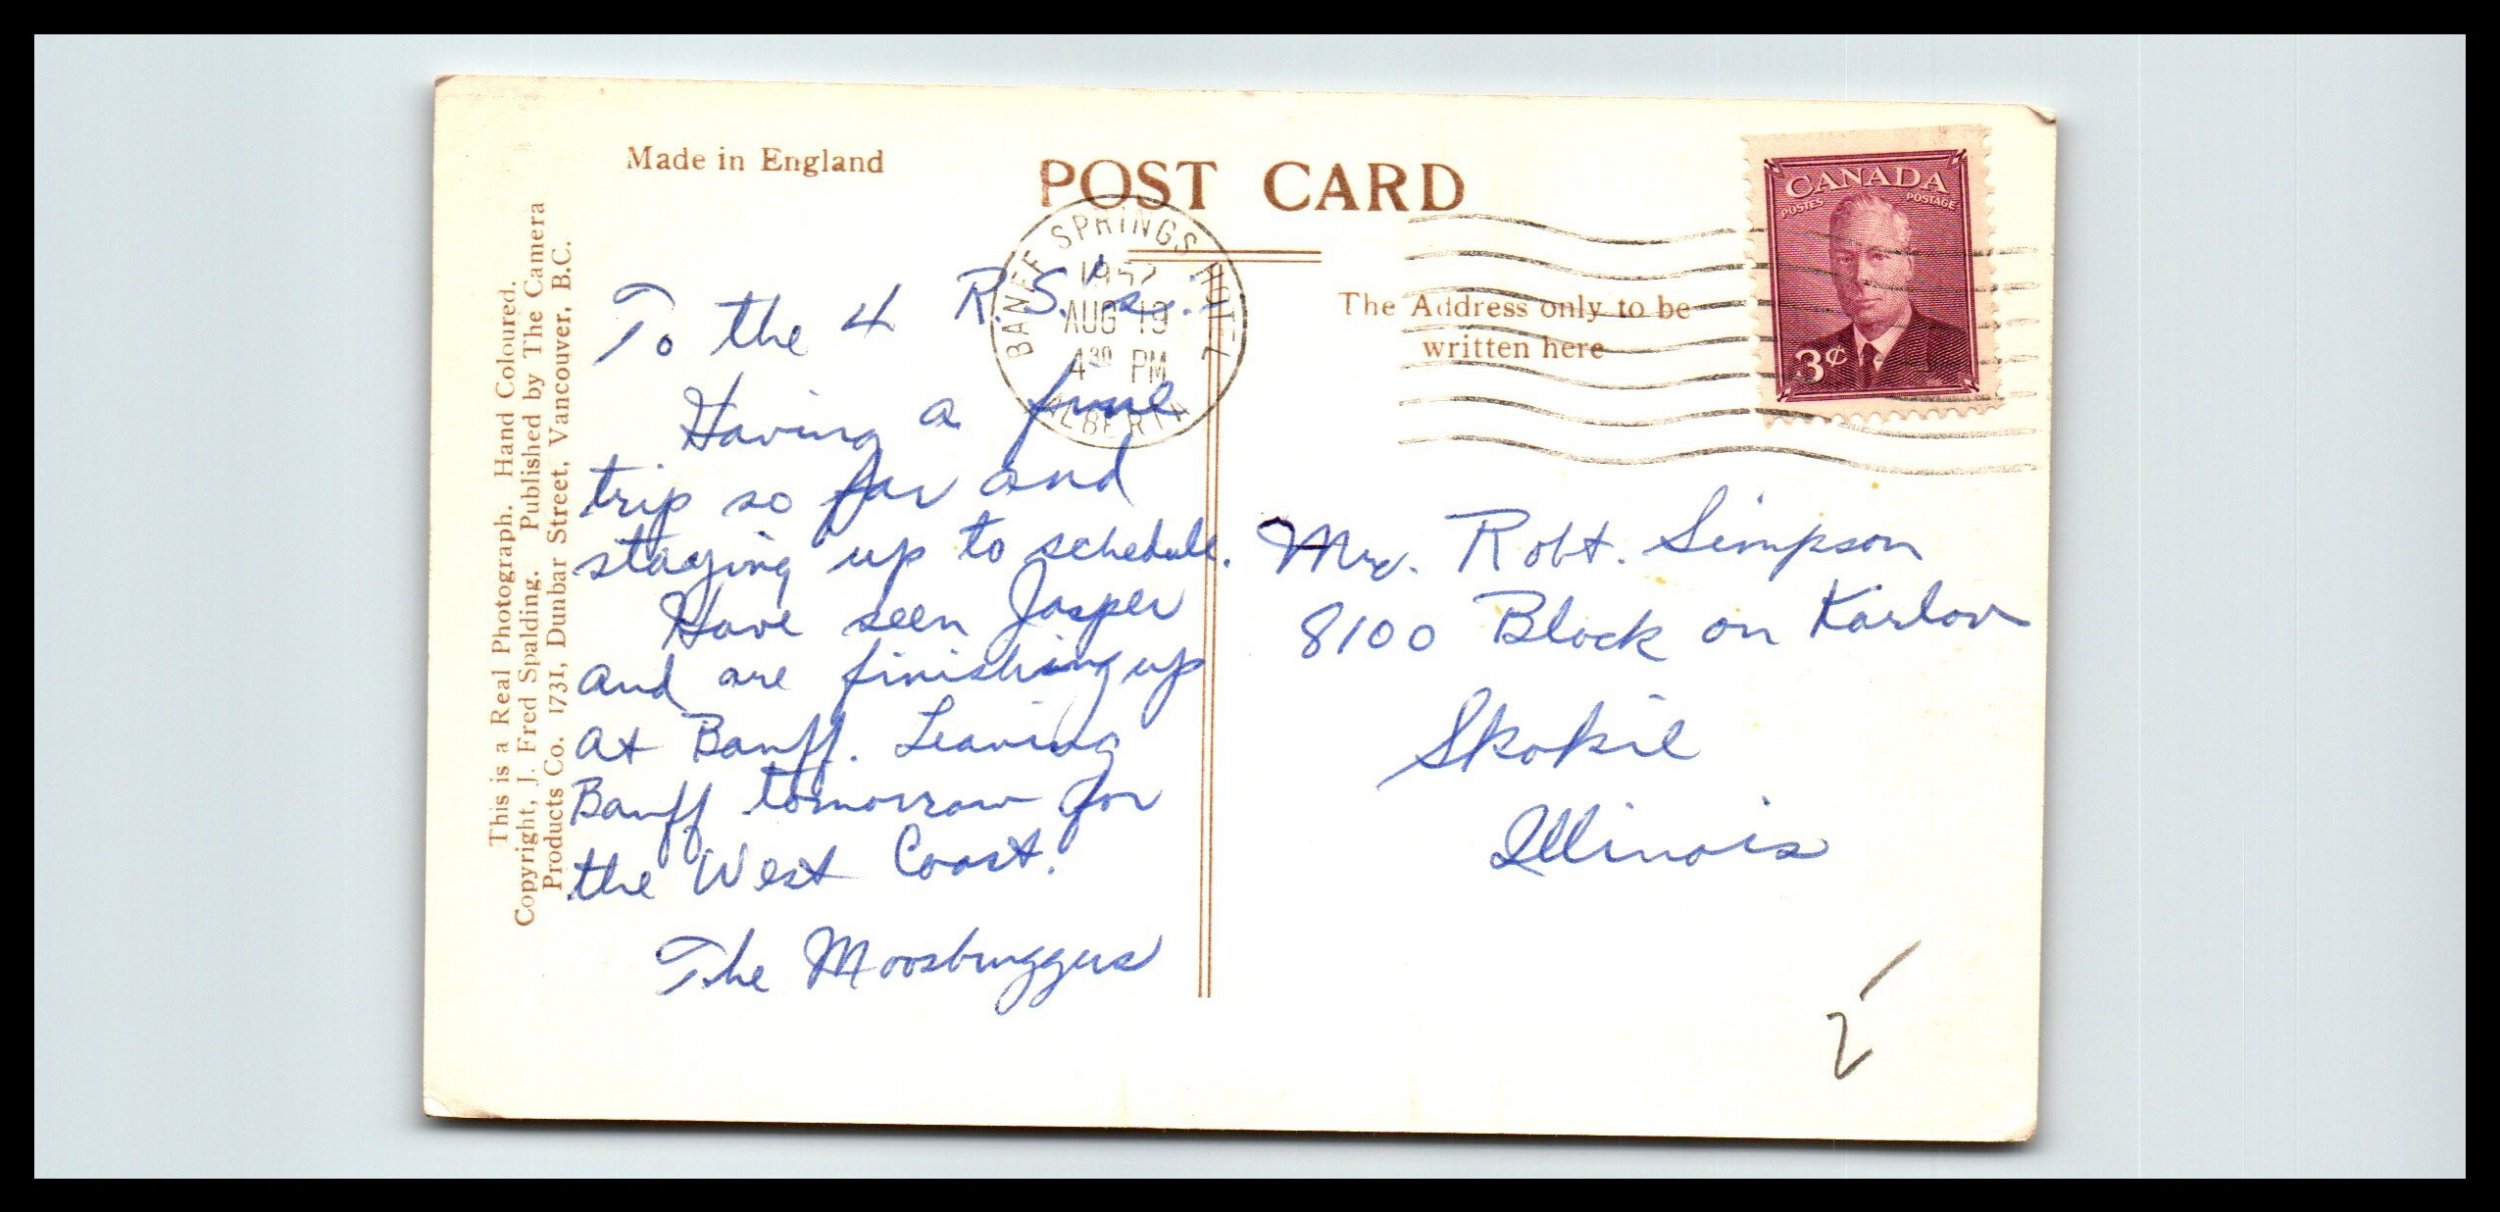 Made in England
POST CARD
CANADA
POSTES POSTAGE
3¢
BANFF SPRINGS HOTEL
1952
AUG 19
4 30 PM
ALBERTA
The Address only to be
written here
This is a Real Photograph. Hand Coloured.
Copyright, J. Fred Spalding. Published by The Camera
Products Co. 1731, Dunbar Street, Vancouver, B.C.
To the 4 R.S.'s.:
Having a fine
trip so far and
staying up to schedule.
Have seen Jasper
and are finishing up
at Banff. Leaving
Banff tomorrow for
the West Coast.
The Moosbruggers
Mr. Robt. Simpson
8100 Block on Karlov
Skokie
Illinois